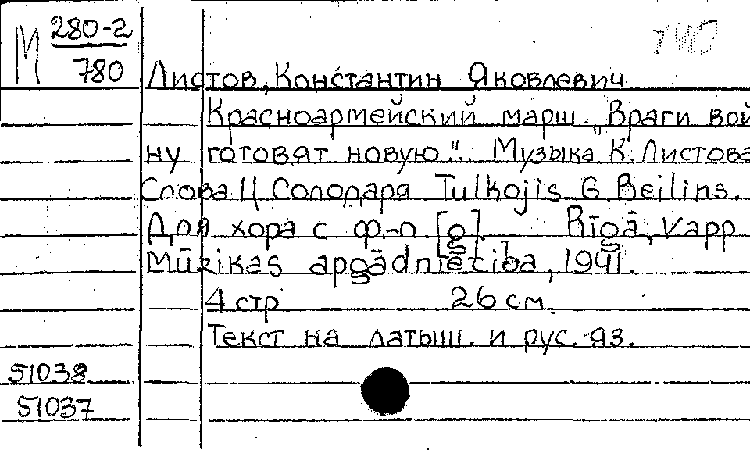 М 280-2
780
Листов, Константин Яковлевич
Красноармейский марш. "Враги вой
ну готовят новую". Музыка К. Листова
Слова Ц. Солодаря Tulkojis G. Beilins.
Для хора с ф-п [g]. Rīgā, Vapp
Mūzikas apgādniecība, 1941.
4 стр 26 см.
Текст на латыш. и рус. яз.
51038
51037